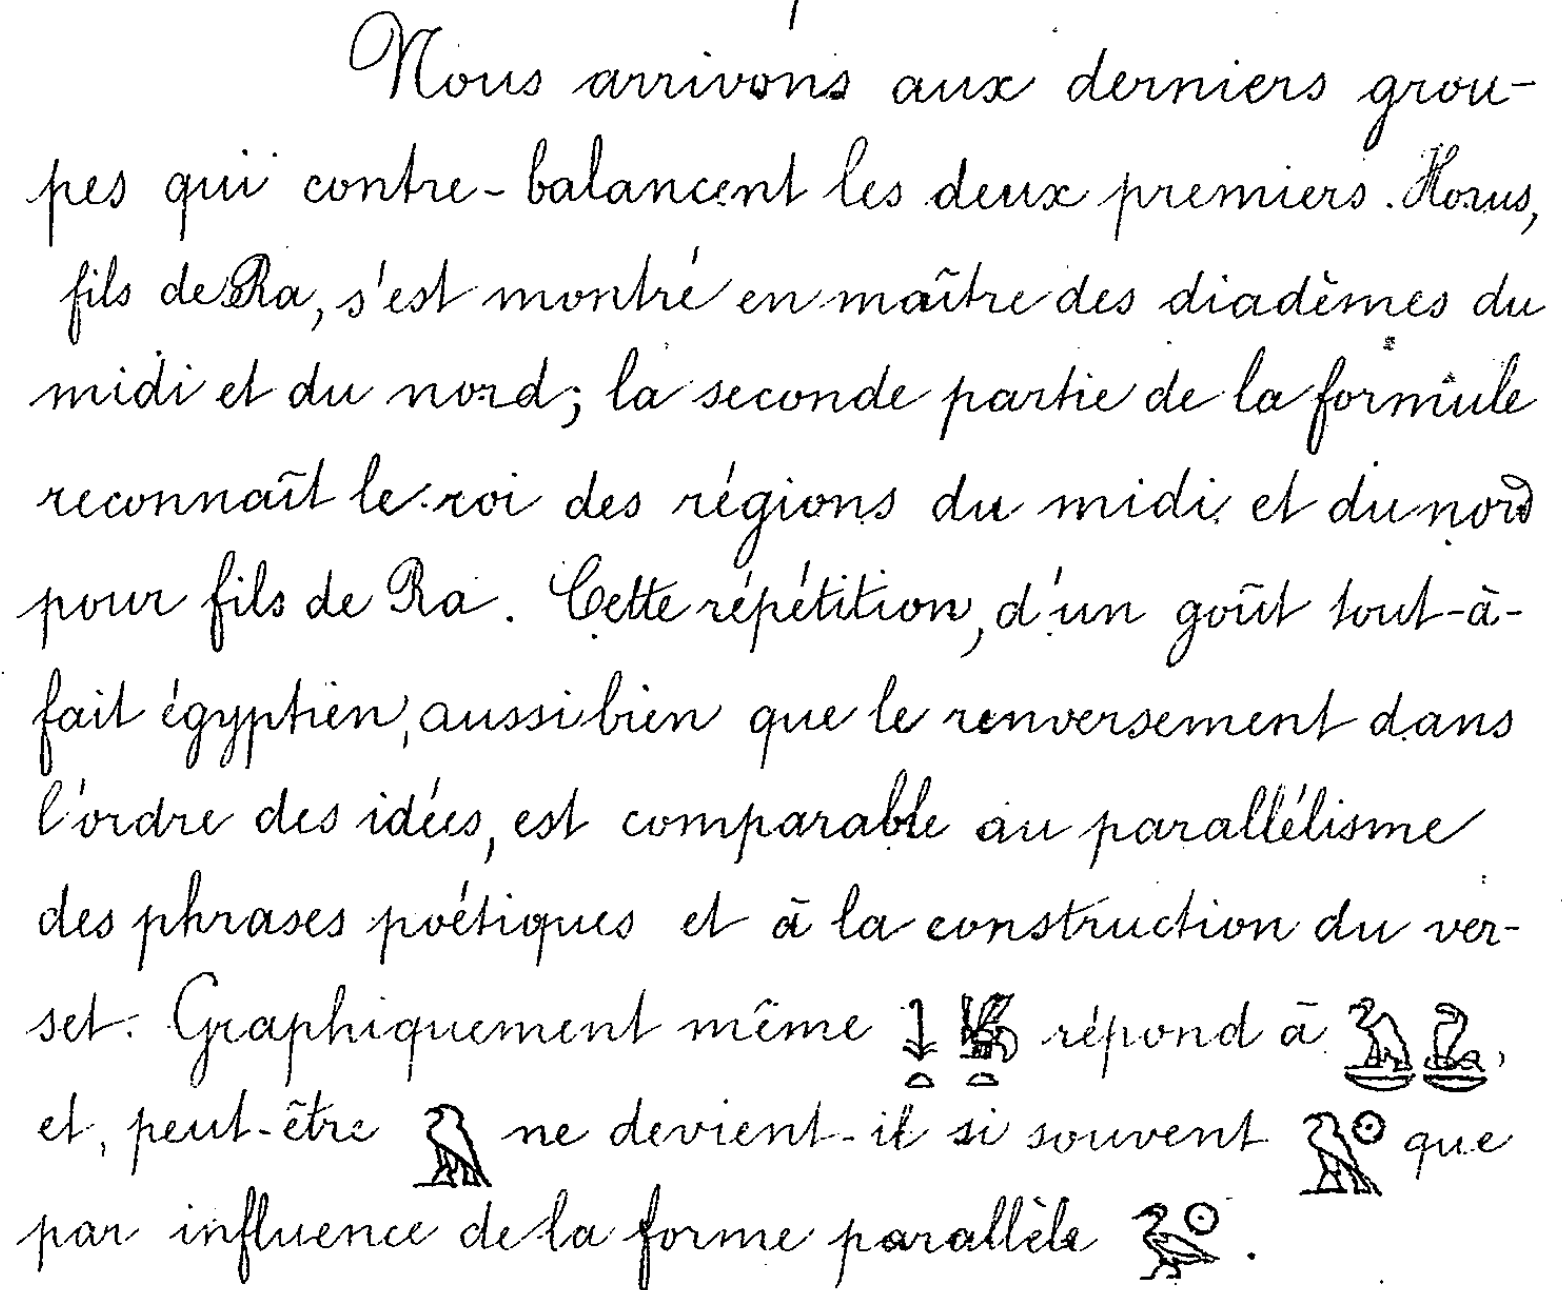 Nous arrivons aux derniers grou-
pes qui contre-balancent les deux premiers. Horus,
fils de Ra, s'est montré en maître des diadèmes du
midi et du nord; la seconde partie de la formule
reconnaît le roi des régions du midi et du nord
pour fils de Ra. Cette répétition, d'un goût tout-à-
fait égyptien, aussi bien que le renversement dans
l'ordre des idées, est comparable au parallélisme
des phrases poétiques et à la construction du ver-
set. Graphiquement même 𓇓𓏏𓆤𓏏 répond à 𓅒𓆗,
et, peut-être 𓅃 ne devient-il si souvent 𓅃𓇳 que
par influence de la forme parallèle 𓅭𓇳.